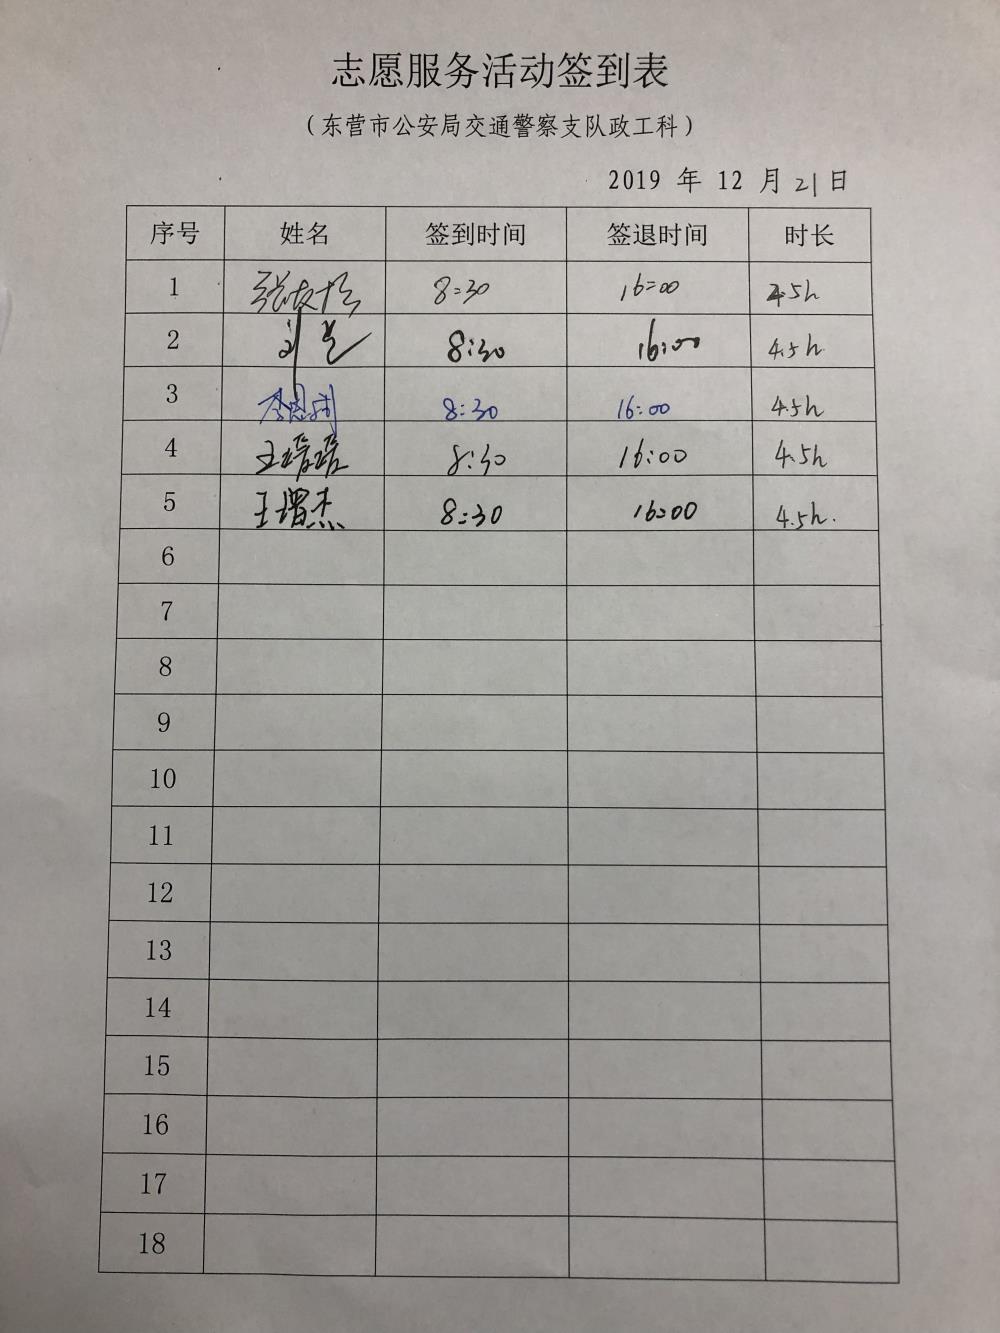 志愿服务活动签到表
（东营市公安局交通警察支队政工科）
2019 年 12 月 21 日
序号 姓名 签到时间 签退时间 时长
1 8:30 16:00 4.5h
2 8:30 16:00 4.5h
3 8:30 16:00 4.5h
4 王瑨瑨 8:30 16:00 4.5h
5 王增杰 8:30 16:00 4.5h.
6
7
8
9
10
11
12
13
14
15
16
17
18